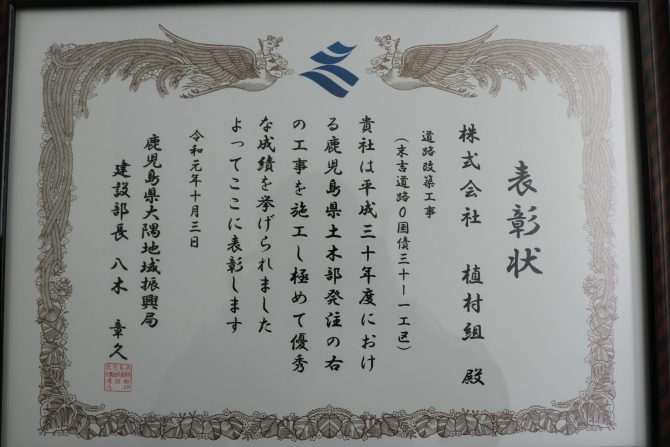 表彰状
株式会社 植村組 殿
道路改築工事
(末吉道路0国債三十ー一工区)
貴社は平成三十年度におけ
る鹿児島県土木部発注の右
の工事を施工し極めて優秀
な成績を挙げられました
よってここに表彰します
令和元年十月三日
鹿児島県大隅地域振興局
建設部長 八木 章久